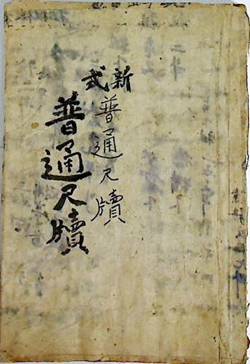 新式
普通尺牘
普通尺牘